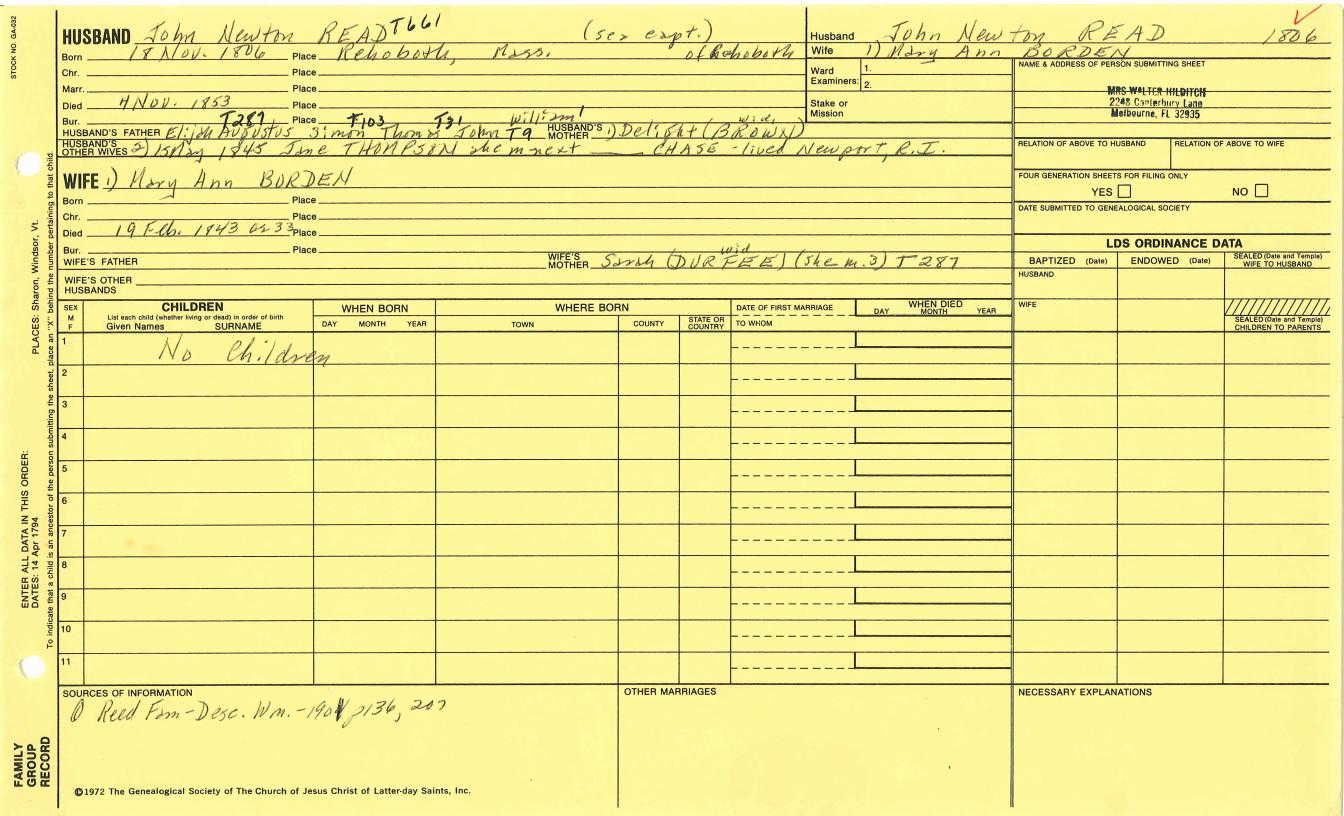 STOCK NO. GA-032
HUSBAND John Newton READ T661 (sea capt.)
Born 18 Nov. 1806 Place Rehoboth, Mass. of Rehoboth
Chr. Place
Marr. Place
Died 4 Nov. 1853 Place
Bur. Place
T287 T103 T31 William1
HUSBAND'S FATHER Elijah Augustus Simon Thomas John T9 HUSBAND'S MOTHER 1) Delight (BROWN) wid.
HUSBAND'S OTHER WIVES 2) 15 May 1845 Jane THOMPSON she m next ____ CHASE - lived Newport, R.I.
WIFE 1) Mary Ann BORDEN
Born Place
Chr. Place
Died 19 Feb. 1843 or 33 Place
Bur. Place
WIFE'S FATHER WIFE'S MOTHER Sarah (DURFEE) wid (she m. 3) T287
WIFE'S OTHER HUSBANDS
Husband John Newton READ 1806
Wife 1) Mary Ann BORDEN
Ward Examiners: 1. 2.
Stake or Mission
NAME & ADDRESS OF PERSON SUBMITTING SHEET
MRS WALTER HILDITCH
2248 Canterbury Lane
Melbourne, FL 32935
RELATION OF ABOVE TO HUSBAND RELATION OF ABOVE TO WIFE
FOUR GENERATION SHEETS FOR FILING ONLY
YES NO
DATE SUBMITTED TO GENEALOGICAL SOCIETY
LDS ORDINANCE DATA
BAPTIZED (Date) ENDOWED (Date) SEALED (Date and Temple) WIFE TO HUSBAND
HUSBAND
WIFE
SEALED (Date and Temple) CHILDREN TO PARENTS
SEX M F
CHILDREN
List each child (whether living or dead) in order of birth
Given Names SURNAME
WHEN BORN
DAY MONTH YEAR
WHERE BORN
TOWN COUNTY STATE OR COUNTRY
DATE OF FIRST MARRIAGE
TO WHOM
WHEN DIED
DAY MONTH YEAR
1 No Children
2
3
4
5
6
7
8
9
10
11
SOURCES OF INFORMATION
① Reed Fam-Desc. Wm.-1901 p136, 207
OTHER MARRIAGES
NECESSARY EXPLANATIONS
©1972 The Genealogical Society of The Church of Jesus Christ of Latter-day Saints, Inc.
FAMILY GROUP RECORD
ENTER ALL DATA IN THIS ORDER:
DATES: 14 Apr 1794
PLACES: Sharon, Windsor, Vt.
To indicate that a child is an ancestor of the person submitting the sheet, place an "X" behind the number pertaining to that child